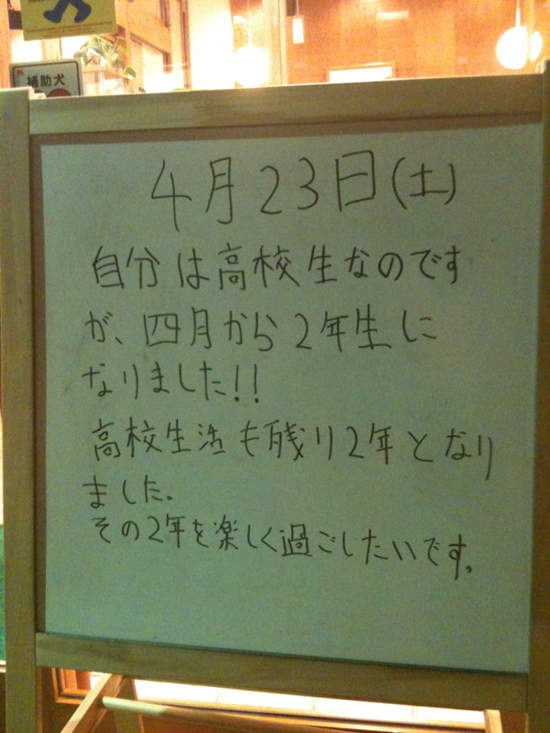 補助犬
4月23日(土)
自分は高校生なのです
が、四月から2年生に
なりました!!
高校生活も残り2年となり
ました。
その2年を楽しく過ごしたいです。